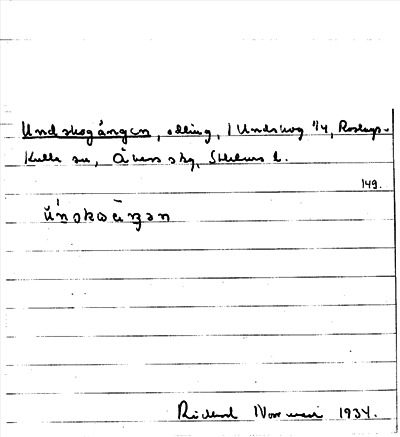 Undskogången, odling, 1 Undskog 1/4, Roslags-
Kulla sn, Åkers skg, Sthlms l.
149.
Rickard 1934.